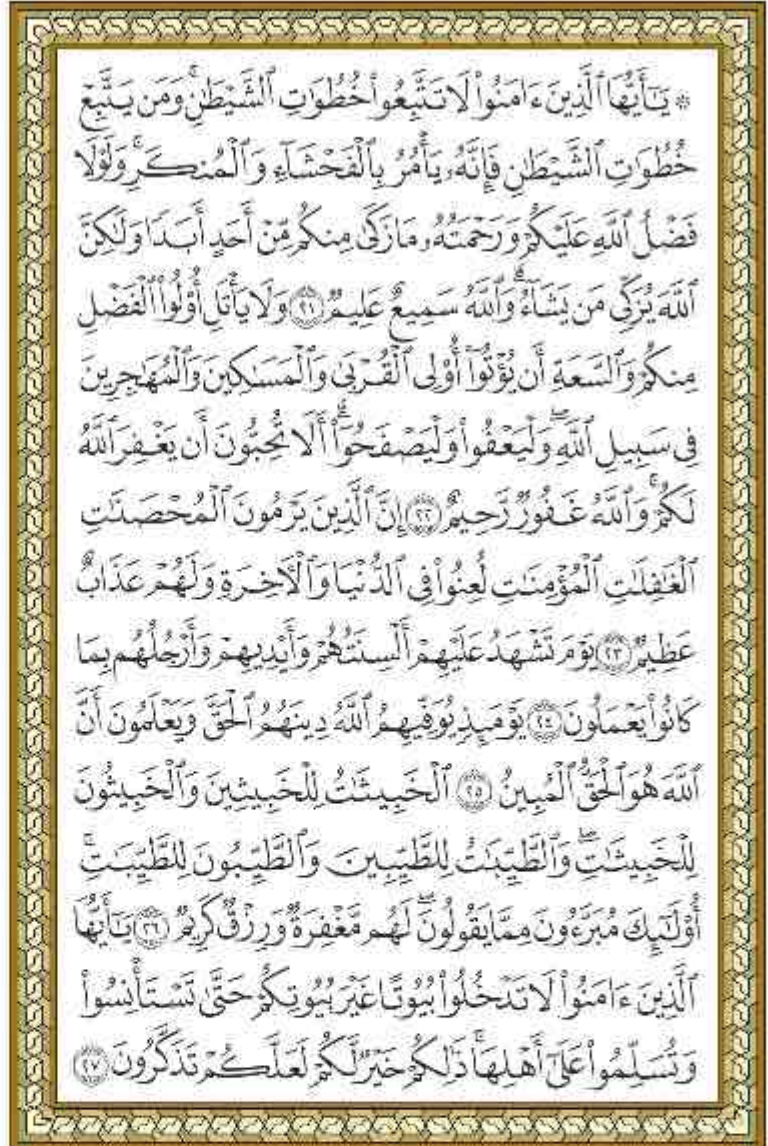 ۞ يَٰٓأَيُّهَا ٱلَّذِينَ ءَامَنُواْ لَا تَتَّبِعُواْ خُطُوَٰتِ ٱلشَّيْطَٰنِۚ وَمَن يَتَّبِعْ
خُطُوَٰتِ ٱلشَّيْطَٰنِ فَإِنَّهُۥ يَأْمُرُ بِٱلْفَحْشَآءِ وَٱلْمُنكَرِۚ وَلَوْلَا
فَضْلُ ٱللَّهِ عَلَيْكُمْ وَرَحْمَتُهُۥ مَا زَكَىٰ مِنكُم مِّنْ أَحَدٍ أَبَدًا وَلَٰكِنَّ
ٱللَّهَ يُزَكِّى مَن يَشَآءُۗ وَٱللَّهُ سَمِيعٌ عَلِيمٌ ٢١ وَلَا يَأْتَلِ أُوْلُواْ ٱلْفَضْلِ
مِنكُمْ وَٱلسَّعَةِ أَن يُؤْتُوٓاْ أُوْلِى ٱلْقُرْبَىٰ وَٱلْمَسَٰكِينَ وَٱلْمُهَٰجِرِينَ
فِى سَبِيلِ ٱللَّهِۖ وَلْيَعْفُواْ وَلْيَصْفَحُوٓاْۗ أَلَا تُحِبُّونَ أَن يَغْفِرَ ٱللَّهُ
لَكُمْۚ وَٱللَّهُ غَفُورٌ رَّحِيمٌ ٢٢ إِنَّ ٱلَّذِينَ يَرْمُونَ ٱلْمُحْصَنَٰتِ
ٱلْغَٰفِلَٰتِ ٱلْمُؤْمِنَٰتِ لُعِنُواْ فِى ٱلدُّنْيَا وَٱلْأَخِرَةِ وَلَهُمْ عَذَابٌ
عَظِيمٌ ٢٣ يَوْمَ تَشْهَدُ عَلَيْهِمْ أَلْسِنَتُهُمْ وَأَيْدِيهِمْ وَأَرْجُلُهُم بِمَا
كَانُواْ يَعْمَلُونَ ٢٤ يَوْمَئِذٍ يُوَفِّيهِمُ ٱللَّهُ دِينَهُمُ ٱلْحَقَّ وَيَعْلَمُونَ أَنَّ
ٱللَّهَ هُوَ ٱلْحَقُّ ٱلْمُبِينُ ٢٥ ٱلْخَبِيثَٰتُ لِلْخَبِيثِينَ وَٱلْخَبِيثُونَ
لِلْخَبِيثَٰتِۖ وَٱلطَّيِّبَٰتُ لِلطَّيِّبِينَ وَٱلطَّيِّبُونَ لِلطَّيِّبَٰتِۚ
أُوْلَٰٓئِكَ مُبَرَّءُونَ مِمَّا يَقُولُونَۖ لَهُم مَّغْفِرَةٌ وَرِزْقٌ كَرِيمٌ ٢٦ يَٰٓأَيُّهَا
ٱلَّذِينَ ءَامَنُواْ لَا تَدْخُلُواْ بُيُوتًا غَيْرَ بُيُوتِكُمْ حَتَّىٰ تَسْتَأْنِسُواْ
وَتُسَلِّمُواْ عَلَىٰٓ أَهْلِهَاۚ ذَٰلِكُمْ خَيْرٌ لَّكُمْ لَعَلَّكُمْ تَذَكَّرُونَ ٢٧